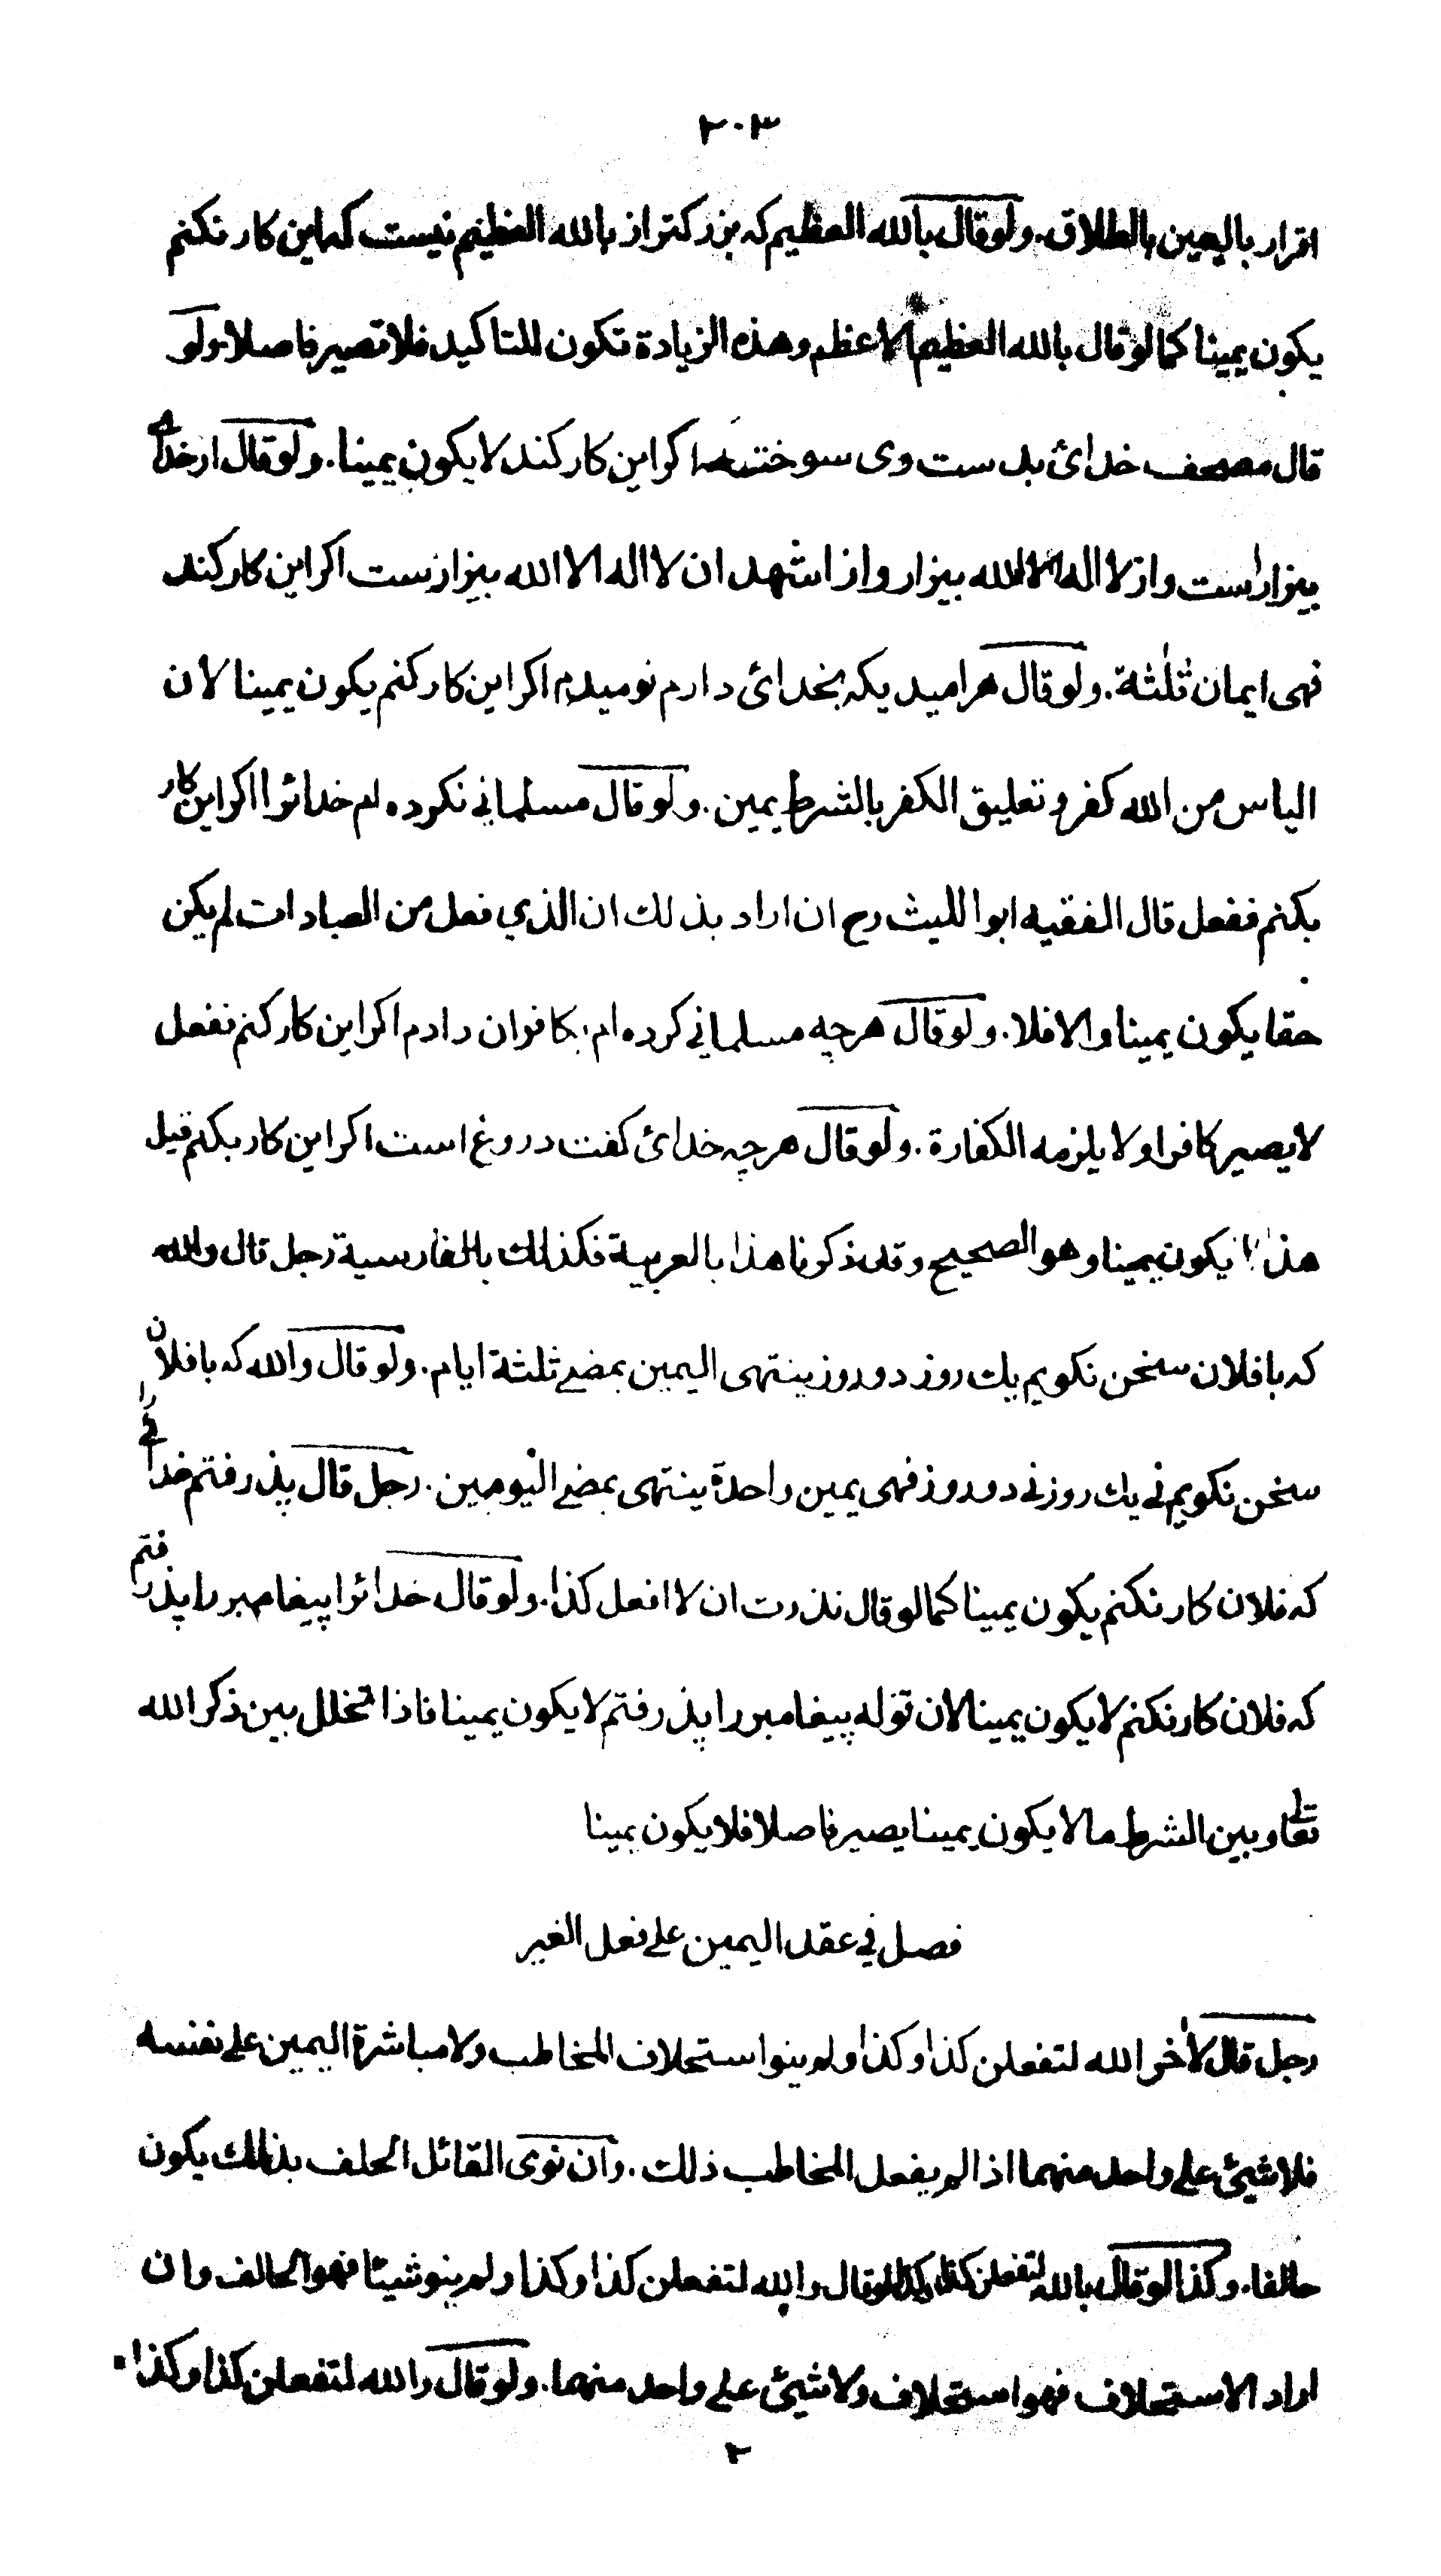 ٢٠٣
اقرار باليمين بالطلاق. ولو قال بالله العظيم كه بزركتر از بالله العظيم نيست كه اين كار نكنم
يكون يمينا كما لو قال بالله العظيم الاعظم وهذه الزيادة تكون للتاكيد فلا تصير فاصلا ولو
قال مصحف خدائ بدست وى سوخته اكر اين كار كند لا يكون يمينا. ولو قال از خدائے
بيزار است واز لا اله الا الله بيزار واز اشهد ان لا اله الا الله بيزارست اكر اين كار كند
فهى ايمان ثلثة. ولو قال هر اميديكه بخدائ دارم نوميدم اكر اين كار كنم يكون يمينا لان
الياس من الله كفر وتعليق الكفر بالشرط يمين. ولو قال مسلماني نكرده ام خدائرا اكر اين كار
بكنم ففعل قال الفقيه ابو الليث رح ان اراد بذلك ان الذي فعل من العبادات لم يكن
حقا يكون يمينا والا فلا. ولو قال هرچه مسلماني كرده ام بكافران دادم اكر اين كار كنم ففعل
لا يصير كافرا ولا يلزمه الكفارة. ولو قال هرچه خدائ كفت دروغ است اكر اين كار بكنم قيل
هذا لا يكون يمينا وهو الصحيح وقد ذكرنا هذا بالعربية فكذلك بالفارسية رجل قال والله
كه با فلان سخن نكويم يك روز دو روز ينتهى اليمين بمضے ثلثة ايام. ولو قال والله كه با فلان را
سخن نكويم ني يك روز ني دو روز فهى يمين واحدة ينتهى بمضے اليومين. رجل قال پذرفتم خدائے
كه فلان كار نكنم يكون يمينا كما لو قال نذرت ان لا افعل كذا. ولو قال خدائرا پيغامبر را پذرفتم
كه فلان كار نكنم لا يكون يمينا لان قوله پيغامبر را پذرفتم لا يكون يمينا فاذا تخلل بين ذكر الله
تعالى وبين الشرط ما لا يكون يمينا يصير فاصلا فلا يكون يمينا
فصل في عقد اليمين على فعل الغير
رجل قال لآخر الله لتفعلن كذا وكذا ولم ينو استحلاف المخاطب ولا مباشرة اليمين على نفسه
فلا شيئ على واحد منهما اذا لم يفعل المخاطب ذلك. وان نوى القائل الحلف بذلك يكون
حالفا. وكذا لو قال بالله لتفعلن كذا وكذا ولو قال والله لتفعلن كذا وكذا ولم ينو شيئا فهو الحالف وان
اراد الاستحلاف فهو استحلاف ولا شيئ على واحد منهما. ولو قال والله لتفعلن كذا وكذا
٢